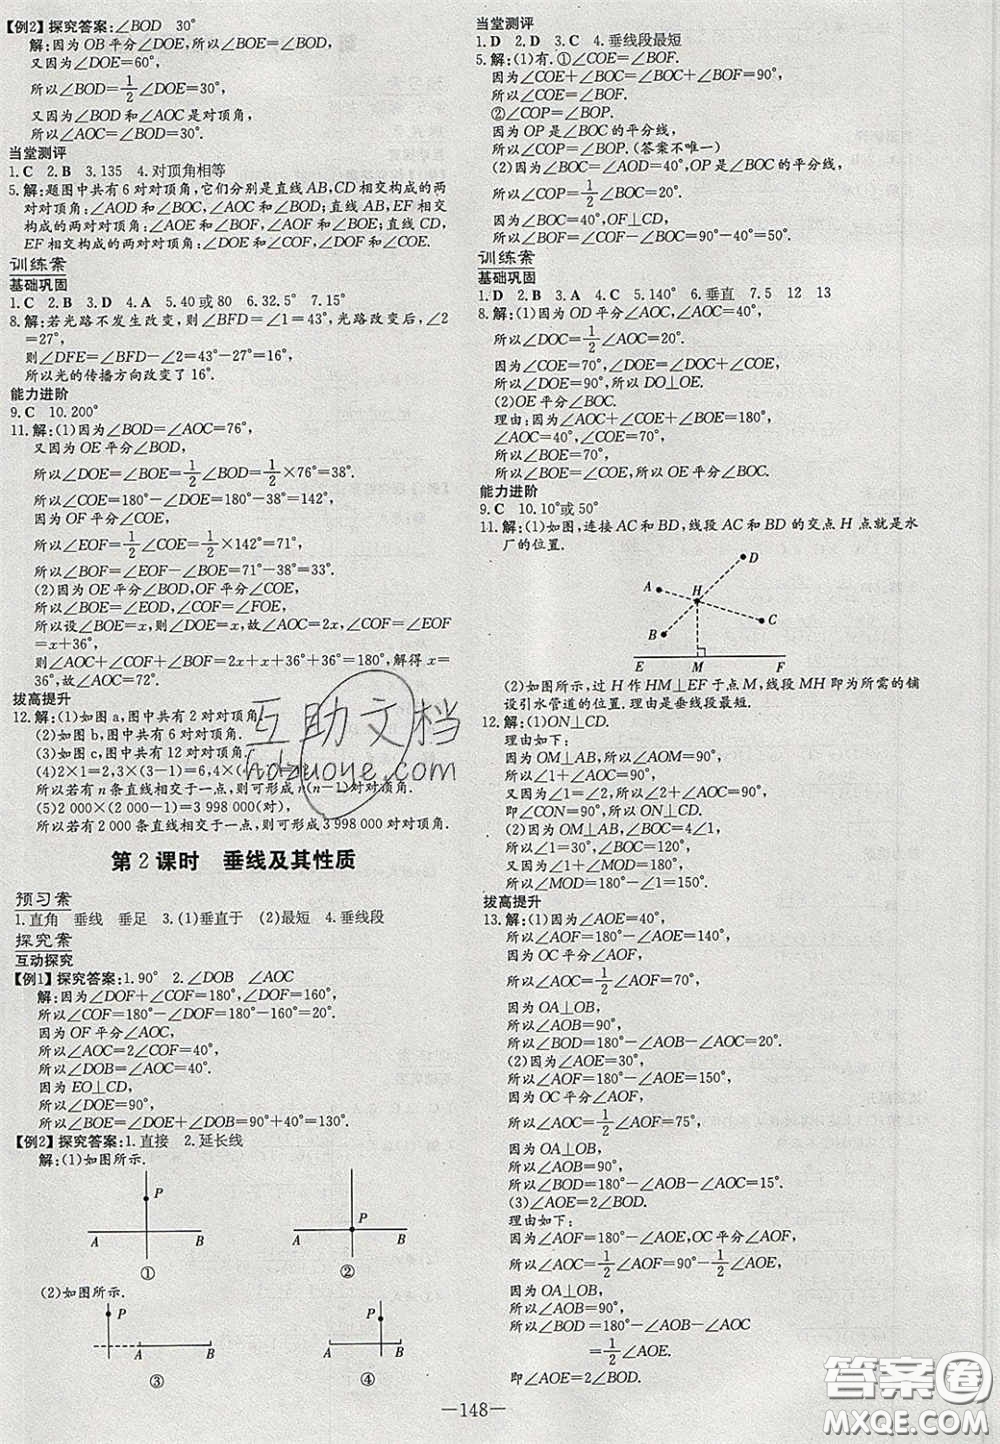 【例2】探究答案:∠BOD 30°
解:因为OB平分∠DOE,所以∠BOE=∠BOD,
又因为∠DOE=60°,
所以∠BOD=1/2∠DOE=30°,
又因为∠BOD和∠AOC是对顶角,
所以∠AOC=∠BOD=30°.
当堂测评
1.C 2.B 3.135 4.对顶角相等
5.解:题图中共有6对对顶角,它们分别是直线AB,CD相交构成的两
对对顶角:∠AOD和∠BOC,∠AOC和∠BOD;直线AB,EF相交
构成的两对对顶角:∠AOE和∠BOF,∠AOF和∠BOE;直线CD,
EF相交构成的两对对顶角:∠DOE和∠COF,∠DOF和∠COE.
训练案
基础巩固
1.C 2.B 3.D 4.A 5.40或80 6.32.5° 7.15°
8.解:若光路不发生改变,则∠BFD=∠1=43°,光路改变后,∠2
=27°,
则∠DFE=∠BFD-∠2=43°-27°=16°.
所以光的传播方向改变了16°.
能力进阶
9.C 10.200°
11.解:(1)因为∠BOD=∠AOC=76°,
又因为OE平分∠BOD,
所以∠DOE=∠BOE=1/2∠BOD=1/2×76°=38°.
所以∠COE=180°-∠DOE=180°-38°=142°,
因为OF平分∠COE,
所以∠EOF=1/2∠COE=1/2×142°=71°,
所以∠BOF=∠EOF-∠BOE=71°-38°=33°.
(2)因为OE平分∠BOD,OF平分∠COE,
所以∠BOE=∠EOD,∠COF=∠FOE,
所以设∠BOE=x,则∠DOE=x,故∠AOC=2x,∠COF=∠EOF
=x+36°,
则∠AOC+∠COF+∠BOF=2x+x+36°+36°=180°,解得x=
36°,故∠AOC=72°.
拔高提升
12.解:(1)如图a,图中共有2对对顶角.
(2)如图b,图中共有6对对顶角.
(3)如图c,图中共有12对对顶角.
(4)2×1=2,3×(3-1)=6,4×(4-
所以若有n条直线相交于一点,则可形成n(n-1)对对顶角.
(5)2 000×(2 000-1)=3 998 000(对),
所以若有2 000条直线相交于一点,则可形成3 998 000对对顶角.
第2课时 垂线及其性质
预习案
1.直角 垂线 垂足 3.(1)垂直于 (2)最短 4.垂线段
探究案
互动探究
【例1】探究答案:1.90° 2.∠DOB ∠AOC
解:因为∠DOF+∠COF=180°,∠DOF=160°,
所以∠COF=180°-∠DOF=180°-160°=20°.
因为OF平分∠AOC,
所以∠AOC=2∠COF=40°,
所以∠DOB=∠AOC=40°.
因为EO⊥CD,
所以∠DOE=90°,
所以∠BOE=∠DOE+∠DOB=90°+40°=130°.
【例2】探究答案:1.直接 2.延长线
解:(1)如图所示.
P
A B
①
P
A B
②
(2)如图所示.
P
A B
③
P
A B
④
当堂测评
1.D 2.D 3.D 4.垂线段最短
5.解:(1)有.①∠COE=∠BOF.
因为∠COE+∠BOC=∠BOC+∠BOF=90°,
所以∠COE=∠BOF.
②∠COP=∠BOP.
因为OP是∠BOC的平分线,
所以∠COP=∠BOP.(答案不唯一)
(2)因为∠BOC=∠AOD=40°,OP是∠BOC的平分线,
所以∠COP=1/2∠BOC=20°.
因为∠BOC=40°,OF⊥CD,
所以∠BOF=∠COF-∠BOC=90°-40°=50°.
训练案
基础巩固
1.D 2.D 3.C 4.C 5.140° 6.垂直 7.5 12 13
8.解:(1)因为OD平分∠AOC,∠AOC=40°,
所以∠DOC=1/2∠AOC=20°.
因为∠COE=70°,∠DOE=∠DOC+∠COE,
所以∠DOE=90°,所以DO⊥OE.
(2)OE平分∠BOC.
理由:因为∠AOC+∠COE+∠BOE=180°,
∠AOC=40°,∠COE=70°,
所以∠BOE=70°,
所以∠BOE=∠COE,所以OE平分∠BOC.
能力进阶
9.C 10.10°或50°
11.解:(1)如图,连接AC和BD,线段AC和BD的交点H点就是水
厂的位置.
D
A H
C
B
E M F
(2)如图所示,过H作HM⊥EF于点M,线段MH即为所需的铺
设引水管道的位置.理由是垂线段最短.
12.解:(1)ON⊥CD.
理由如下:
因为OM⊥AB,所以∠AOM=90°,
所以∠1+∠AOC=90°.
又∠1=∠2,所以∠2+∠AOC=90°,
即∠CON=90°,所以ON⊥CD.
(2)因为OM⊥AB,∠BOC=4∠1,
所以∠1=30°,∠BOC=120°.
又∠1+∠MOD=180°,
所以∠MOD=180°-∠1=150°.
拔高提升
13.解:(1)因为∠AOE=40°,
所以∠AOF=180°-∠AOE=140°,
因为OC平分∠AOF,
所以∠AOC=1/2∠AOF=70°,
因为OA⊥OB,
所以∠AOB=90°,
所以∠BOD=180°-∠AOB-∠AOC=20°.
(2)因为∠AOE=30°,
所以∠AOF=180°-∠AOE=150°,
因为OC平分∠AOF,
所以∠AOC=1/2∠AOF=75°,
因为OA⊥OB,
所以∠AOB=90°,
所以∠BOD=180°-∠AOB-∠AOC=15°.
(3)∠AOE=2∠BOD.
理由如下:
因为∠AOF=180°-∠AOE,OC平分∠AOF,
所以∠AOC=1/2∠AOF=90°-1/2∠AOE,
因为OA⊥OB,
所以∠AOB=90°,
所以∠BOD=180°-∠AOB-∠AOC
=1/2∠AOE.
即∠AOE=2∠BOD.
—148—
互助文档
hdzuoye.com
答案圈
MXQE.COM